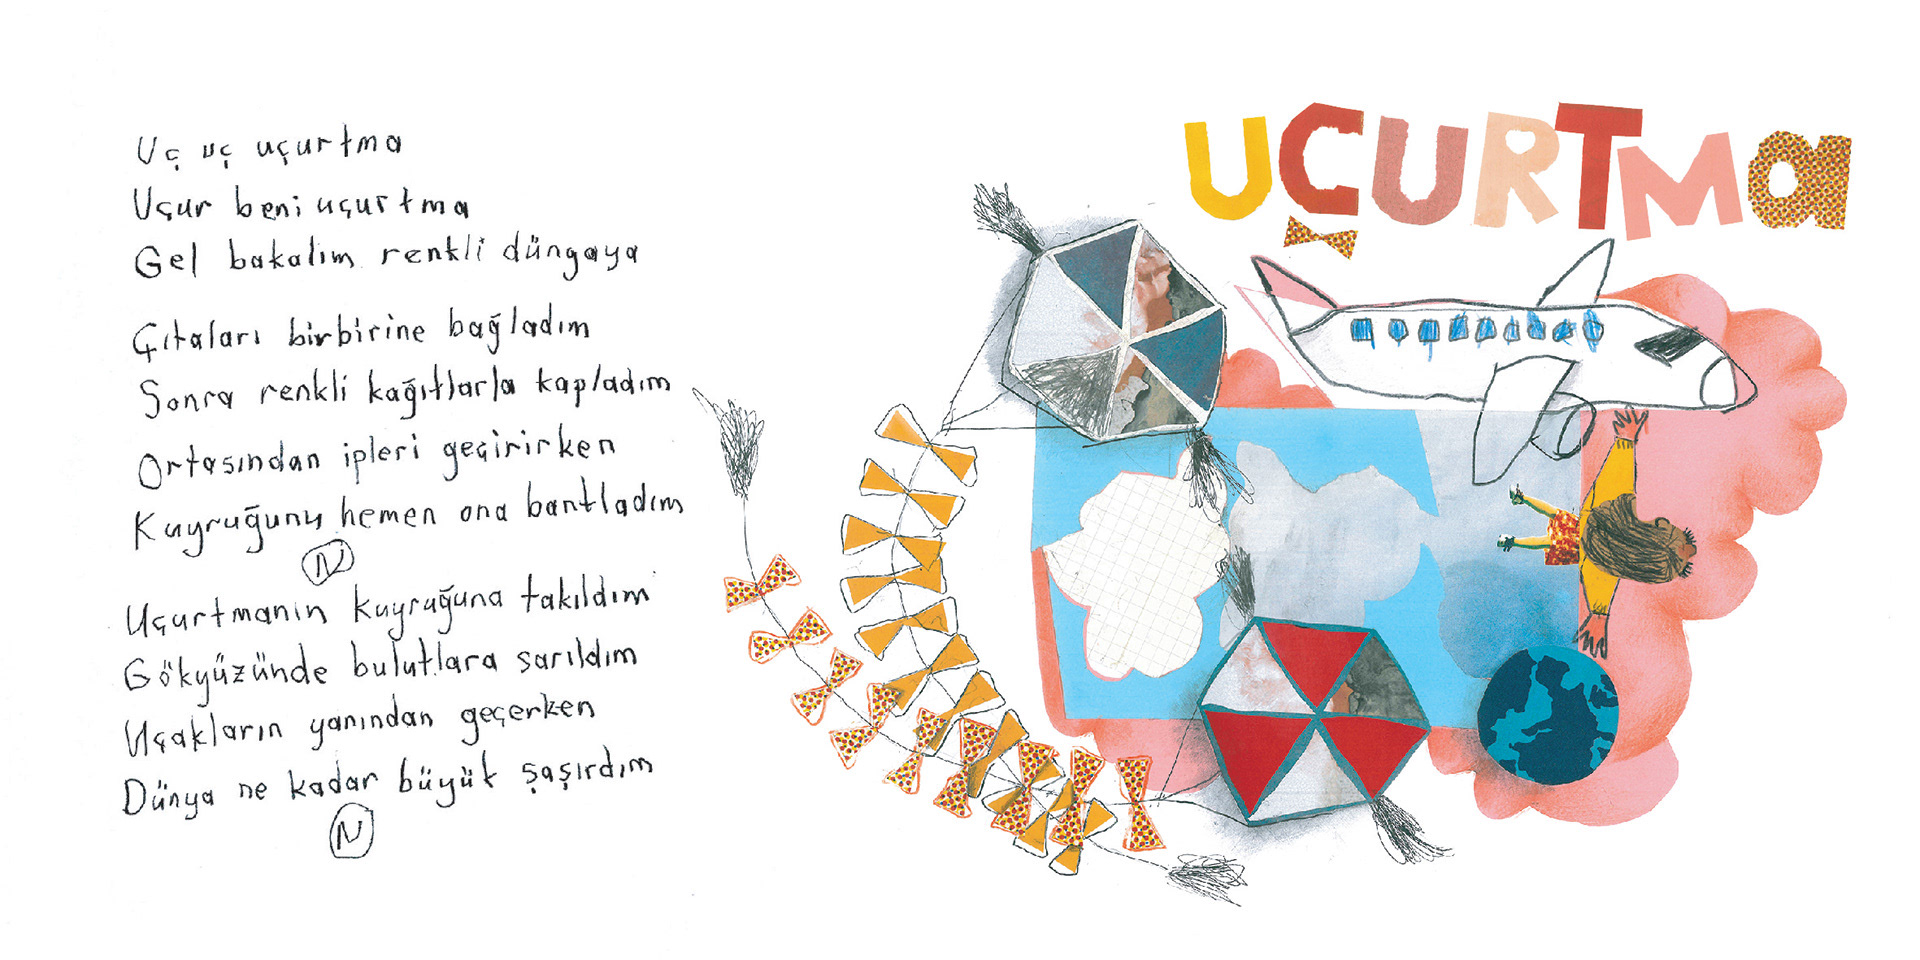 Uç uç uçurtma
Uçur beni uçurtma
Gel bakalım renkli dünyaya
Çıtaları birbirine bağladım
Sonra renkli kağıtlarla kapladım
Ortasından ipleri geçirirken
Kuyruğunu hemen ona bantladım
N
Uçurtmanın kuyruğuna takıldım
Gökyüzünde bulutlara sarıldım
Uçakların yanından geçerken
Dünya ne kadar büyük şaşırdım
N
UÇURTMa